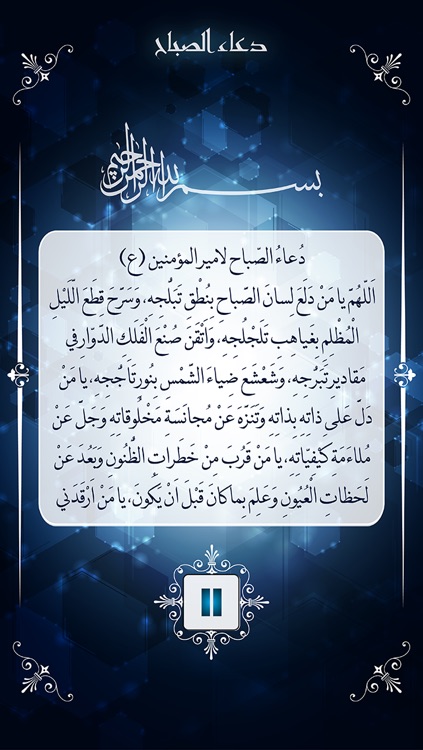 دعاء الصباح
بسم الله الرحمن الرحيم
دُعاءُ الصّباح لامير المؤمنين (ع)
اَللّهُمَّ يا مَنْ دَلَعَ لِسانَ الصَّباحِ بِنُطْقِ تَبَلُّجِه، وَسَرَّحَ قِطَعَ اللَّيْلِ
الْمُظْلِمِ بِغَياهِبِ تَلَجْلُجِه، وَاَتْقَنَ صُنْعَ الْفَلَكِ الدَّوّارِ في
مَقاديرِ تَبَرُّجِه، وَشَعْشَعَ ضِياءَ الشَّمْسِ بِنُورِ تَاَجُّجِه، يا مَنْ
دَلَّ عَلى ذاتِه بِذاتِه وَتَنَزَّهَ عَنْ مُجانَسَةِ مَخْلُوقاتِه وَجَلَّ عَنْ
مُلاءَمَةِ كَيْفِيّاتِه، يا مَنْ قَرُبَ مِنْ خَطَراتِ الظُّنُونِ وَبَعُدَ عَنْ
لَحَظاتِ الْعُيُونِ وَعَلِمَ بِما كانَ قَبْلَ اَنْ يَكُونَ، يا مَنْ اَرْقَدَني